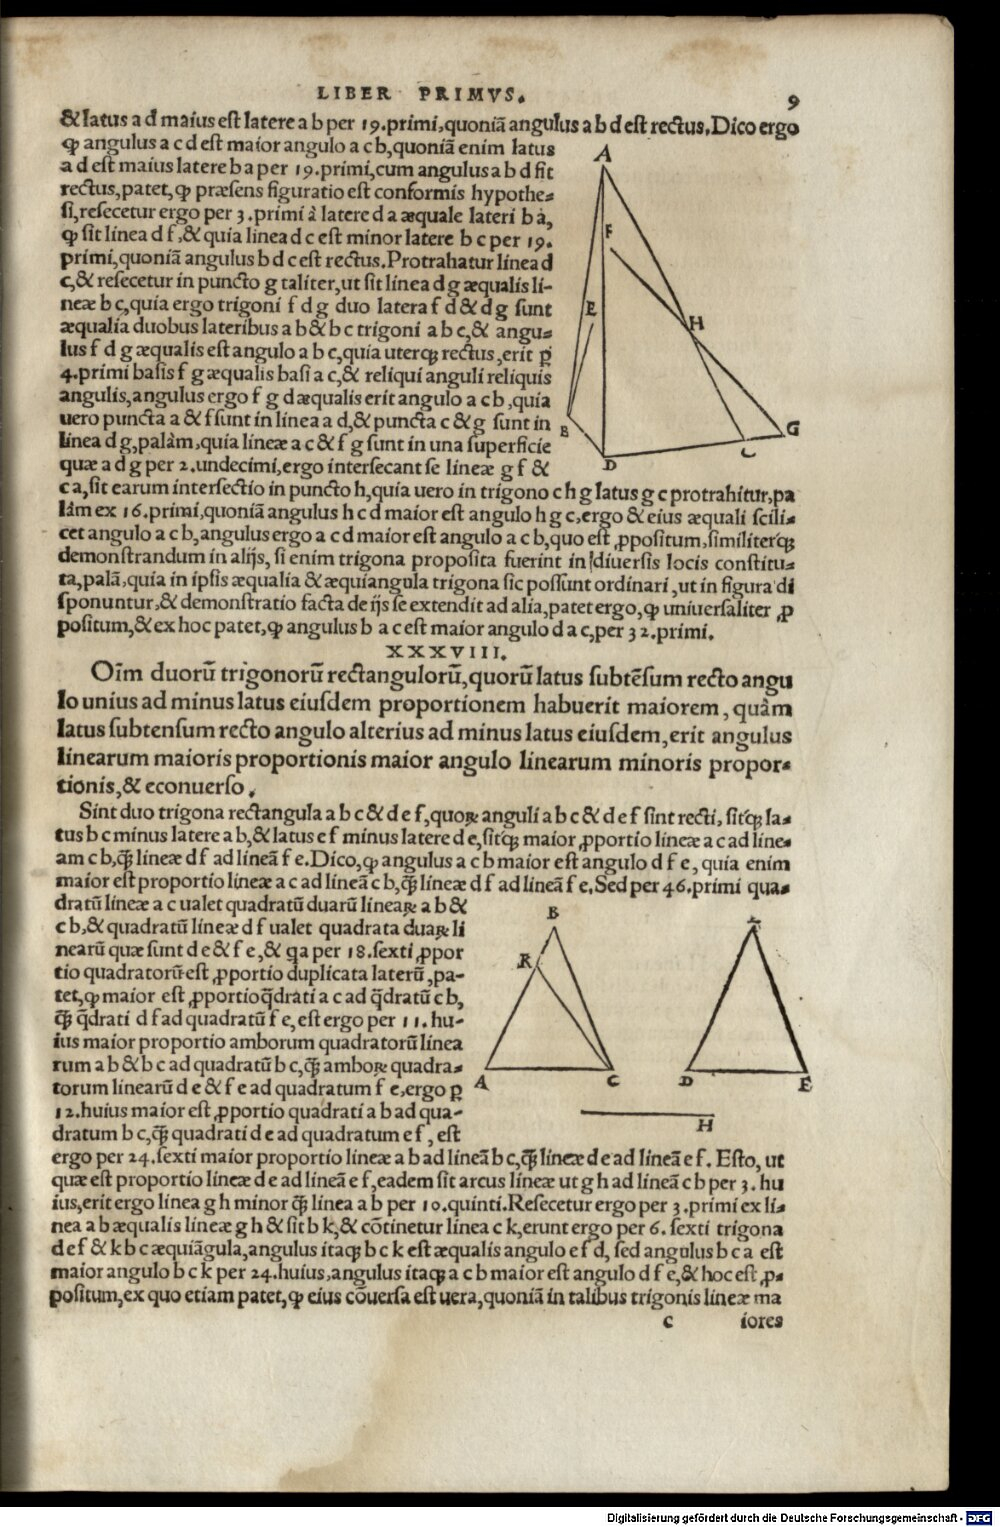 LIBER PRIMVS.
9
& latus a d maius est latere a b per 19. primi, quoniã angulus a b d est rectus. Dico ergo
ꝙ angulus a c d est maior angulo a c b, quoniã enim latus
a d est maius latere b a per 19. primi, cum angulus a b d sit
rectus, patet, ꝙ præsens figuratio est conformis hypothe-
si, resecetur ergo per 3. primi à latere d a æquale lateri b a,
ꝙ sit linea d f, & quia linea d c est minor latere b c per 19.
primi, quoniã angulus b d c est rectus. Protrahatur linea d
c, & resecetur in puncto g taliter, ut sit linea d g æqualis li-
neæ b c, quia ergo trigoni f d g duo latera f d & d g sunt
æqualia duobus lateribus a b & b c trigoni a b c, & angu-
lus f d g æqualis est angulo a b c, quia uterqꝫ rectus, erit ꝑ
4. primi basis f g æqualis basi a c, & reliqui anguli reliquis
angulis, angulus ergo f g d æqualis erit angulo a c b, quia
uero puncta a & f sunt in linea a d, & puncta c & g sunt in
linea d g, palàm, quia lineæ a c & f g sunt in una superficie
quæ a d g per 2. undecimi, ergo intersecant se lineæ g f &
c a, sit earum intersectio in puncto h, quia uero in trigono c h g latus g c protrahitur, pa
làm ex 16. primi, quoniã angulus h c d maior est angulo h g c, ergo & eius æquali scili-
cet angulo a c b, angulus ergo a c d maior est angulo a c b, quo est ꝓpositum, similiterqꝫ
demonstrandum in alijs, si enim trigona proposita fuerint in diuersis locis constitu-
ta, palã, quia in ipsis æqualia & æquiangula trigona sic possunt ordinari, ut in figura di
sponuntur, & demonstratio facta de ijs se extendit ad alia, patet ergo, ꝙ uniuersaliter ꝓ
positum, & ex hoc patet, ꝙ angulus b a c est maior angulo d a c, per 32. primi.
A
F
E
H
B
G
D
C
XXXVIII.
Oĩm duorũ trigonorũ rectangulorũ, quorũ latus subtẽsum recto angu
lo unius ad minus latus eiusdem proportionem habuerit maiorem, quàm
latus subtensum recto angulo alterius ad minus latus eiusdem, erit angulus
linearum maioris proportionis maior angulo linearum minoris propor-
tionis, & econuerso.
Sint duo trigona rectangula a b c & d e f, quoꝝ anguli a b c & d e f sint recti, sitqꝫ la-
tus b c minus latere a b, & latus e f minus latere d e, sitqꝫ maior ꝓportio lineæ a c ad line-
am c b, q̃ꝫ lineæ d f ad lineã f e. Dico, ꝙ angulus a c b maior est angulo d f e, quia enim
maior est proportio lineæ a c ad lineã c b, q̃ꝫ lineæ d f ad lineã f e. Sed per 46. primi qua-
dratũ lineæ a c ualet quadratũ duarũ lineaꝝ a b &
c b, & quadratũ lineæ d f ualet quadrata duaꝝ li
nearũ quæ sunt d e & f e, & qa per 18. sexti ꝓpor
tio quadratorũ est ꝓportio duplicata laterũ, pa-
tet, ꝙ maior est ꝓportio q̃drati a c ad q̃dratũ c b,
q̃ꝫ q̃drati d f ad quadratũ f e, est ergo per 11. hu-
ius maior proportio amborum quadratorũ linea
rum a b & b c ad quadratũ b c, q̃ꝫ amboꝝ quadra-
torum linearũ d e & f e ad quadratum f e, ergo ꝑ
12. huius maior est ꝓportio quadrati a b ad qua-
dratum b c, q̃ꝫ quadrati d e ad quadratum e f, est
ergo per 24. sexti maior proportio lineæ a b ad lineã b c, q̃ꝫ lineæ d e ad lineã e f. Esto, ut
quæ est proportio lineæ d e ad lineã e f, eadem sit arcus lineæ ut g h ad lineã c b per 3. hu
ius, erit ergo linea g h minor q̃ꝫ linea a b per 10. quinti. Resecetur ergo per 3. primi ex li-
nea a b æqualis lineæ g h & sit b k, & cõtinetur linea c k, erunt ergo per 6. sexti trigona
d e f & k b c æquiãgula, angulus itaqꝫ b c k est æqualis angulo e f d, sed angulus b c a est
maior angulo b c k per 24. huius, angulus itaqꝫ a c b maior est angulo d f e, & hoc est ꝓ-
positum, ex quo etiam patet, ꝙ eius cõuersa est uera, quoniã in talibus trigonis lineæ ma
B
K
A
C
D
E
H
c
iores
Digitalisierung gefördert durch die Deutsche Forschungsgemeinschaft - DFG